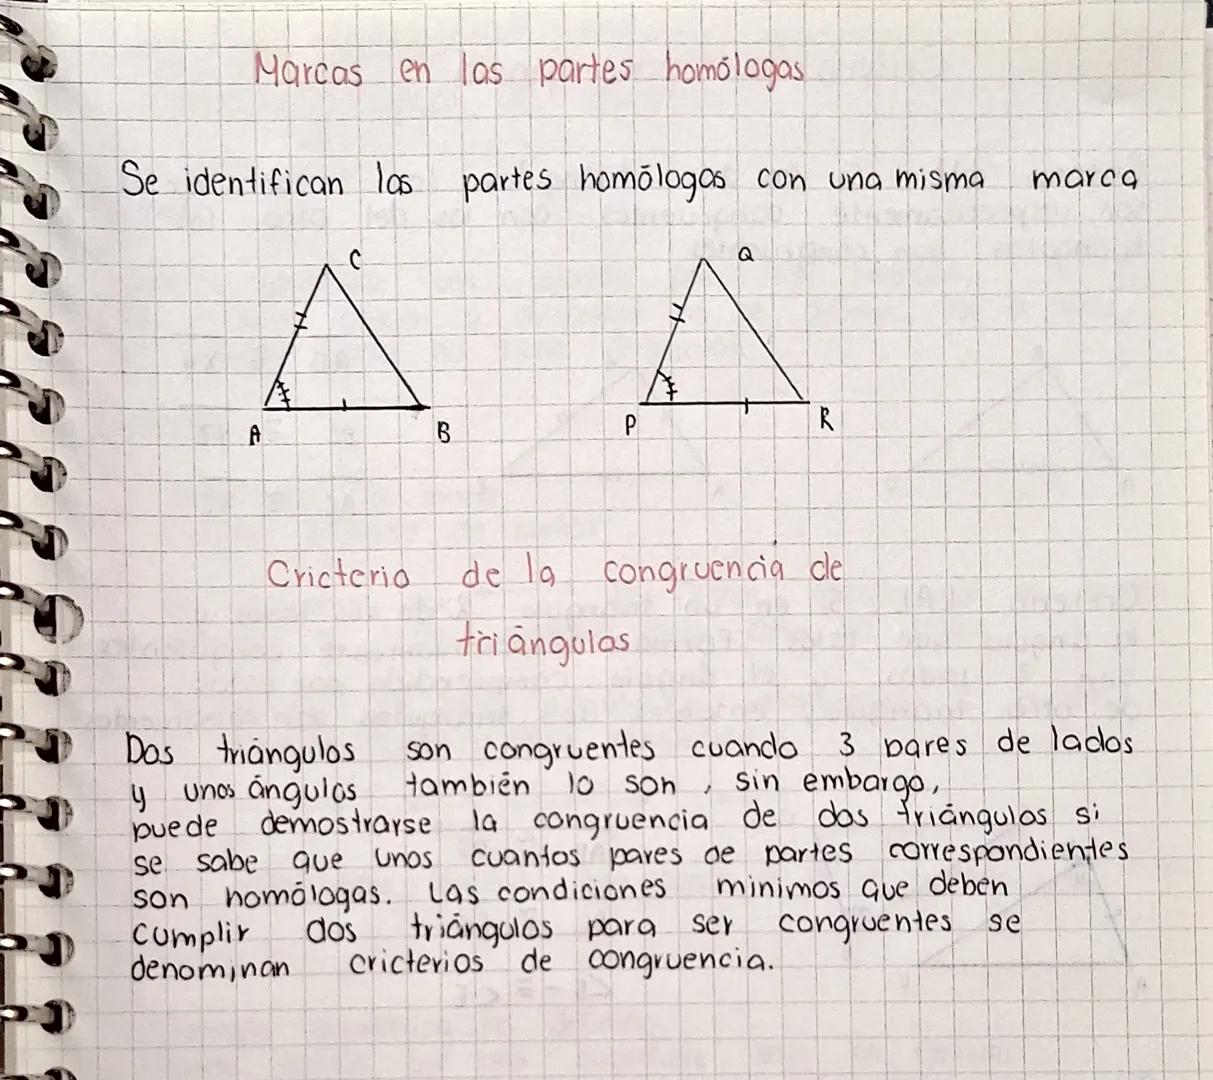 Marcas en las partes homólogas
Se identifican las partes homólogas con una misma marca
C
Q
A
B
P
R
Cricterio de la congruencia de
triángulos
Dos triángulos son congruentes cuando 3 pares de lados
y unos ángulos también lo son, sin embargo,
puede demostrarse la congruencia de dos triángulos si
se sabe que unos cuantos pares de partes correspondientes
son homólogas. Las condiciones minimos que deben
cumplir dos triángulos para ser congruentes se
denominan cricterios de congruencia.